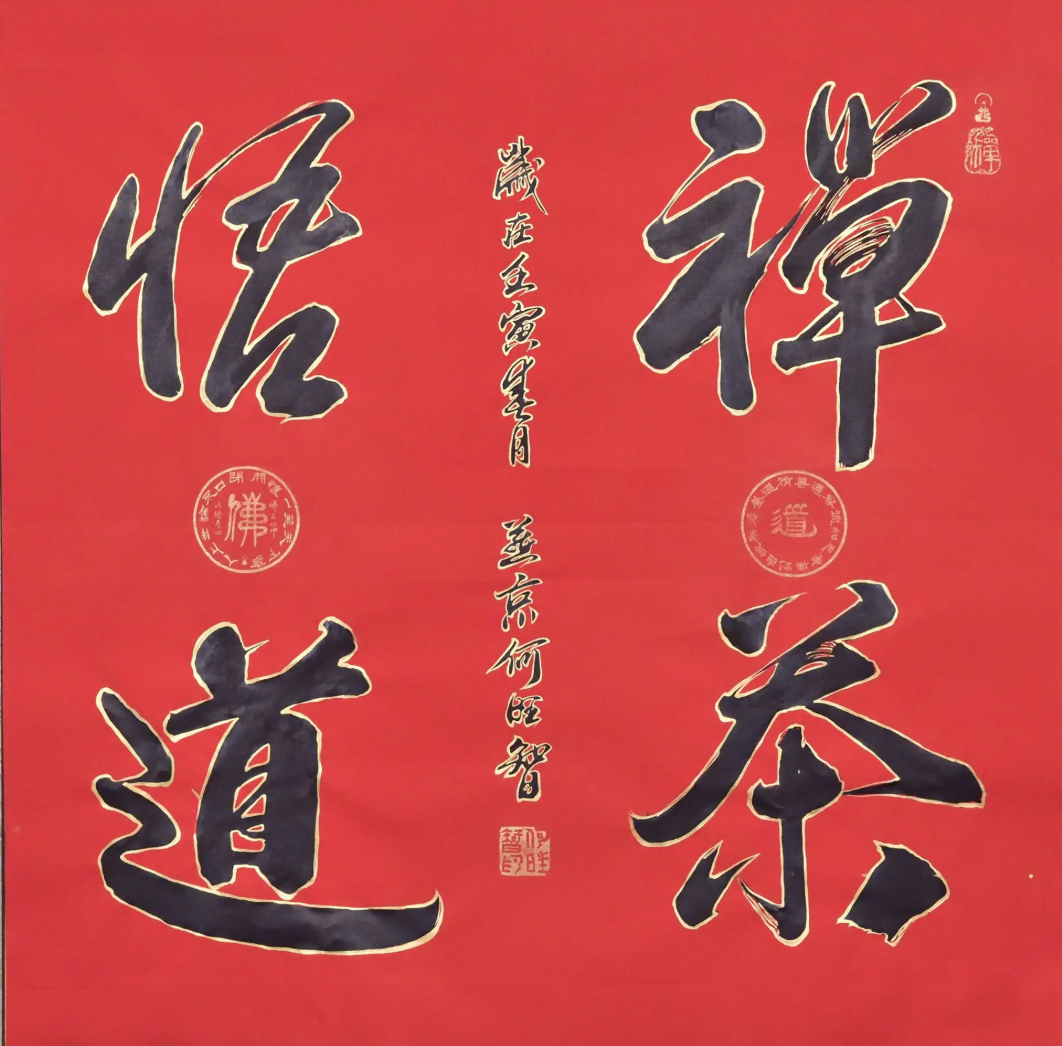 禪茶
悟道
歲在壬寅春月 燕京何旺智
道
佛